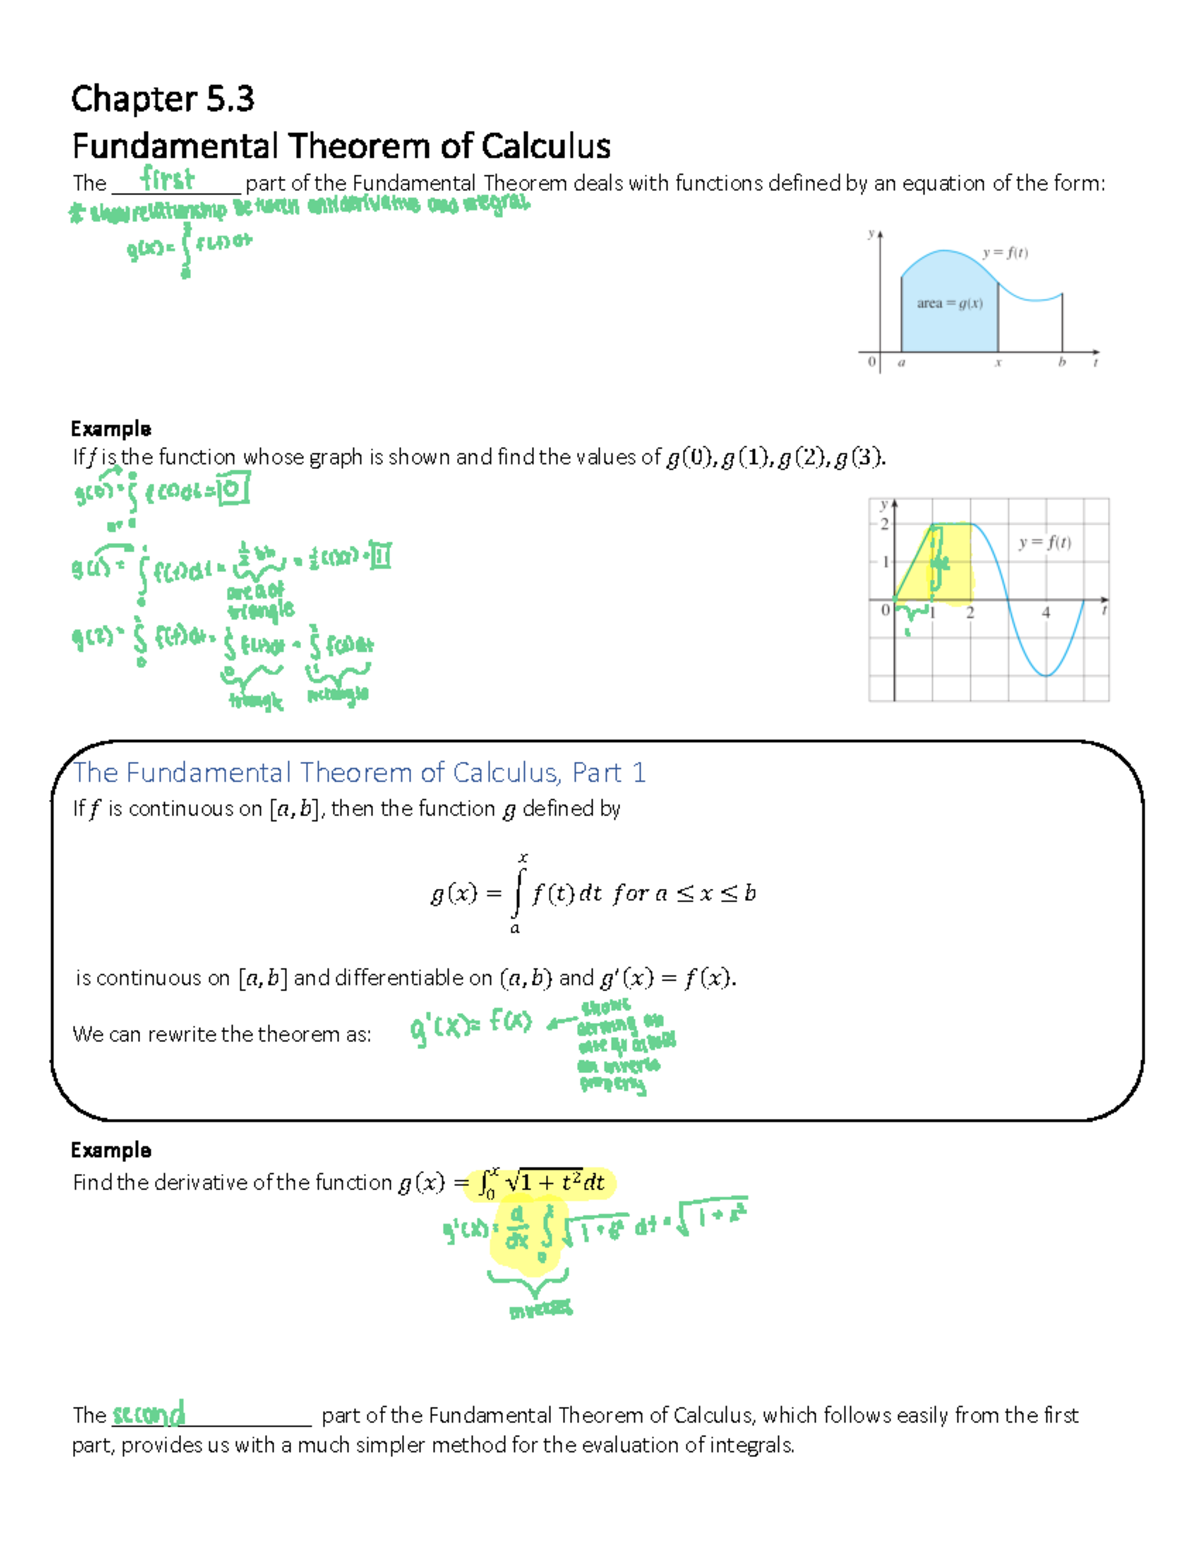 Chapter 5.3
Fundamental Theorem of Calculus
The first part of the Fundamental Theorem deals with functions defined by an equation of the form:
* show relationship between antiderivative and integral
g(x) = ∫ f(t) dt
y
y = f(t)
area = g(x)
0 a x b t
Example
If f is the function whose graph is shown and find the values of g(0), g(1), g(2), g(3).
g(0) = ∫ f(t) dt = 0
g(1) = ∫₀¹ f(t) dt = ½ bh = ½ (1)(2) = 1
area of
triangle
g(2) = ∫₀² f(t) dt = ∫₀¹ f(t) dt + ∫₁² f(t) dt
triangle rectangle
y
2
y = f(t)
1
0 1 2 4 t
The Fundamental Theorem of Calculus, Part 1
If f is continuous on [a, b], then the function g defined by
g(x) = ∫ₐˣ f(t) dt for a ≤ x ≤ b
is continuous on [a, b] and differentiable on (a, b) and g′(x) = f(x).
We can rewrite the theorem as: g'(x) = f(x) ← shows
an inverse
property
Example
Find the derivative of the function g(x) = ∫₀ˣ √1 + t² dt
g'(x) = d/dx ∫₀ˣ √1 + t² dt = √1 + x²
inverses
The second part of the Fundamental Theorem of Calculus, which follows easily from the first
part, provides us with a much simpler method for the evaluation of integrals.